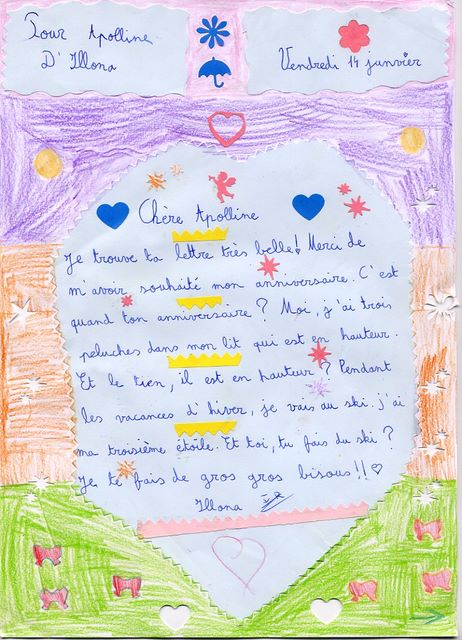 Pour Apolline
D'Illona
Vendredi 14 janvier
Chère Apolline
Je trouve ta lettre très belle! Merci de
m'avoir souhaité mon anniversaire. C'est
quand ton anniversaire? Moi, j'ai trois
peluches dans mon lit qui est en hauteur.
Et le tien, il est en hauteur? Pendant
les vacances d'hiver, je vais au ski. j'ai
ma troisième étoile. Et toi, tu fais du ski?
Je te fais de gros gros bisous!! ♡
Illona